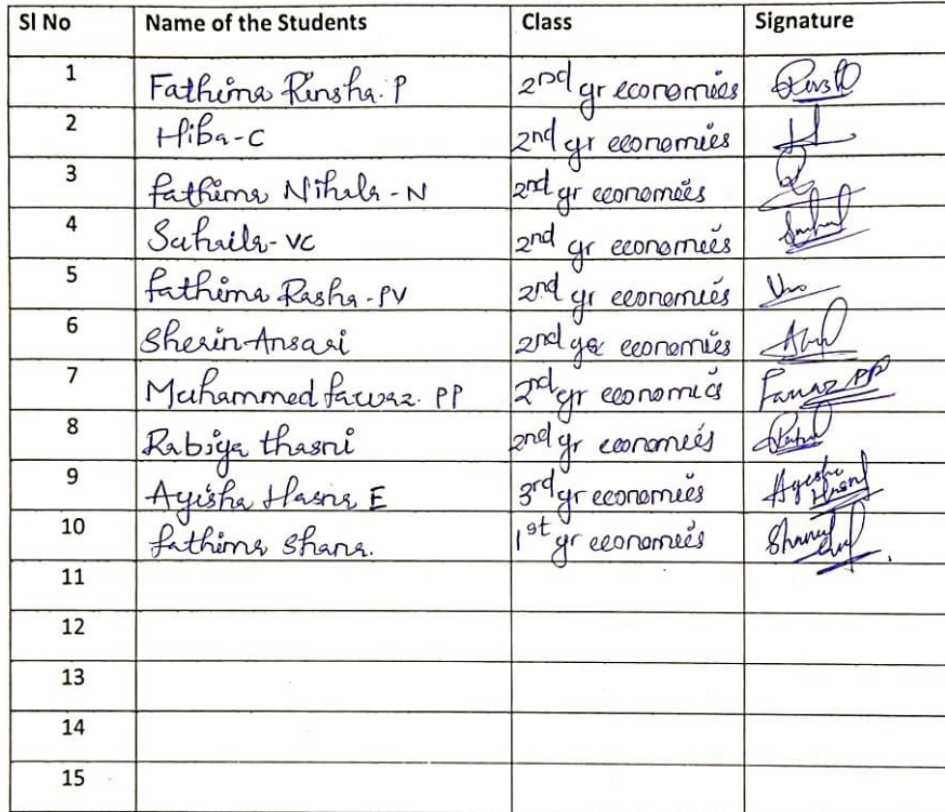 Sl No Name of the Students Class Signature
1 Fathima Rinsha. P 2nd yr economics
2 Hiba - C 2nd yr economics
3 fathima Nihala - N 2nd yr economics
4 Suhaila - VC 2nd yr economics
5 fathima Rasha - PV 2nd yr economics
6 Sherin Ansari 2nd yr economics
7 Muhammed fawaz. PP 2nd yr economics Fawaz PP
8 Rabiya thasni 2nd yr economics
9 Ayisha Hasna E 3rd yr economics Ayisha Hasna
10 fathima Shana. 1st yr economics
11
12
13
14
15